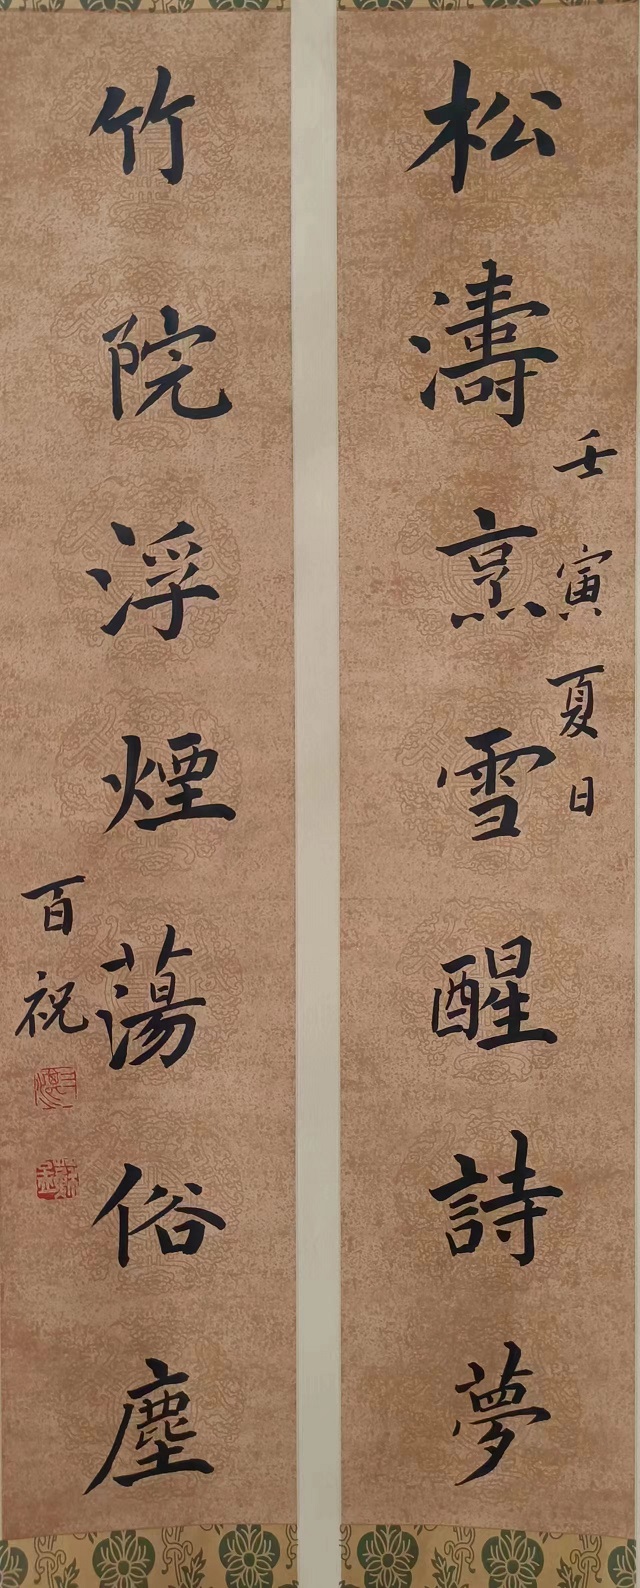 松濤烹雪醒詩夢
壬寅夏日
竹院浮煙蕩俗塵
百祝